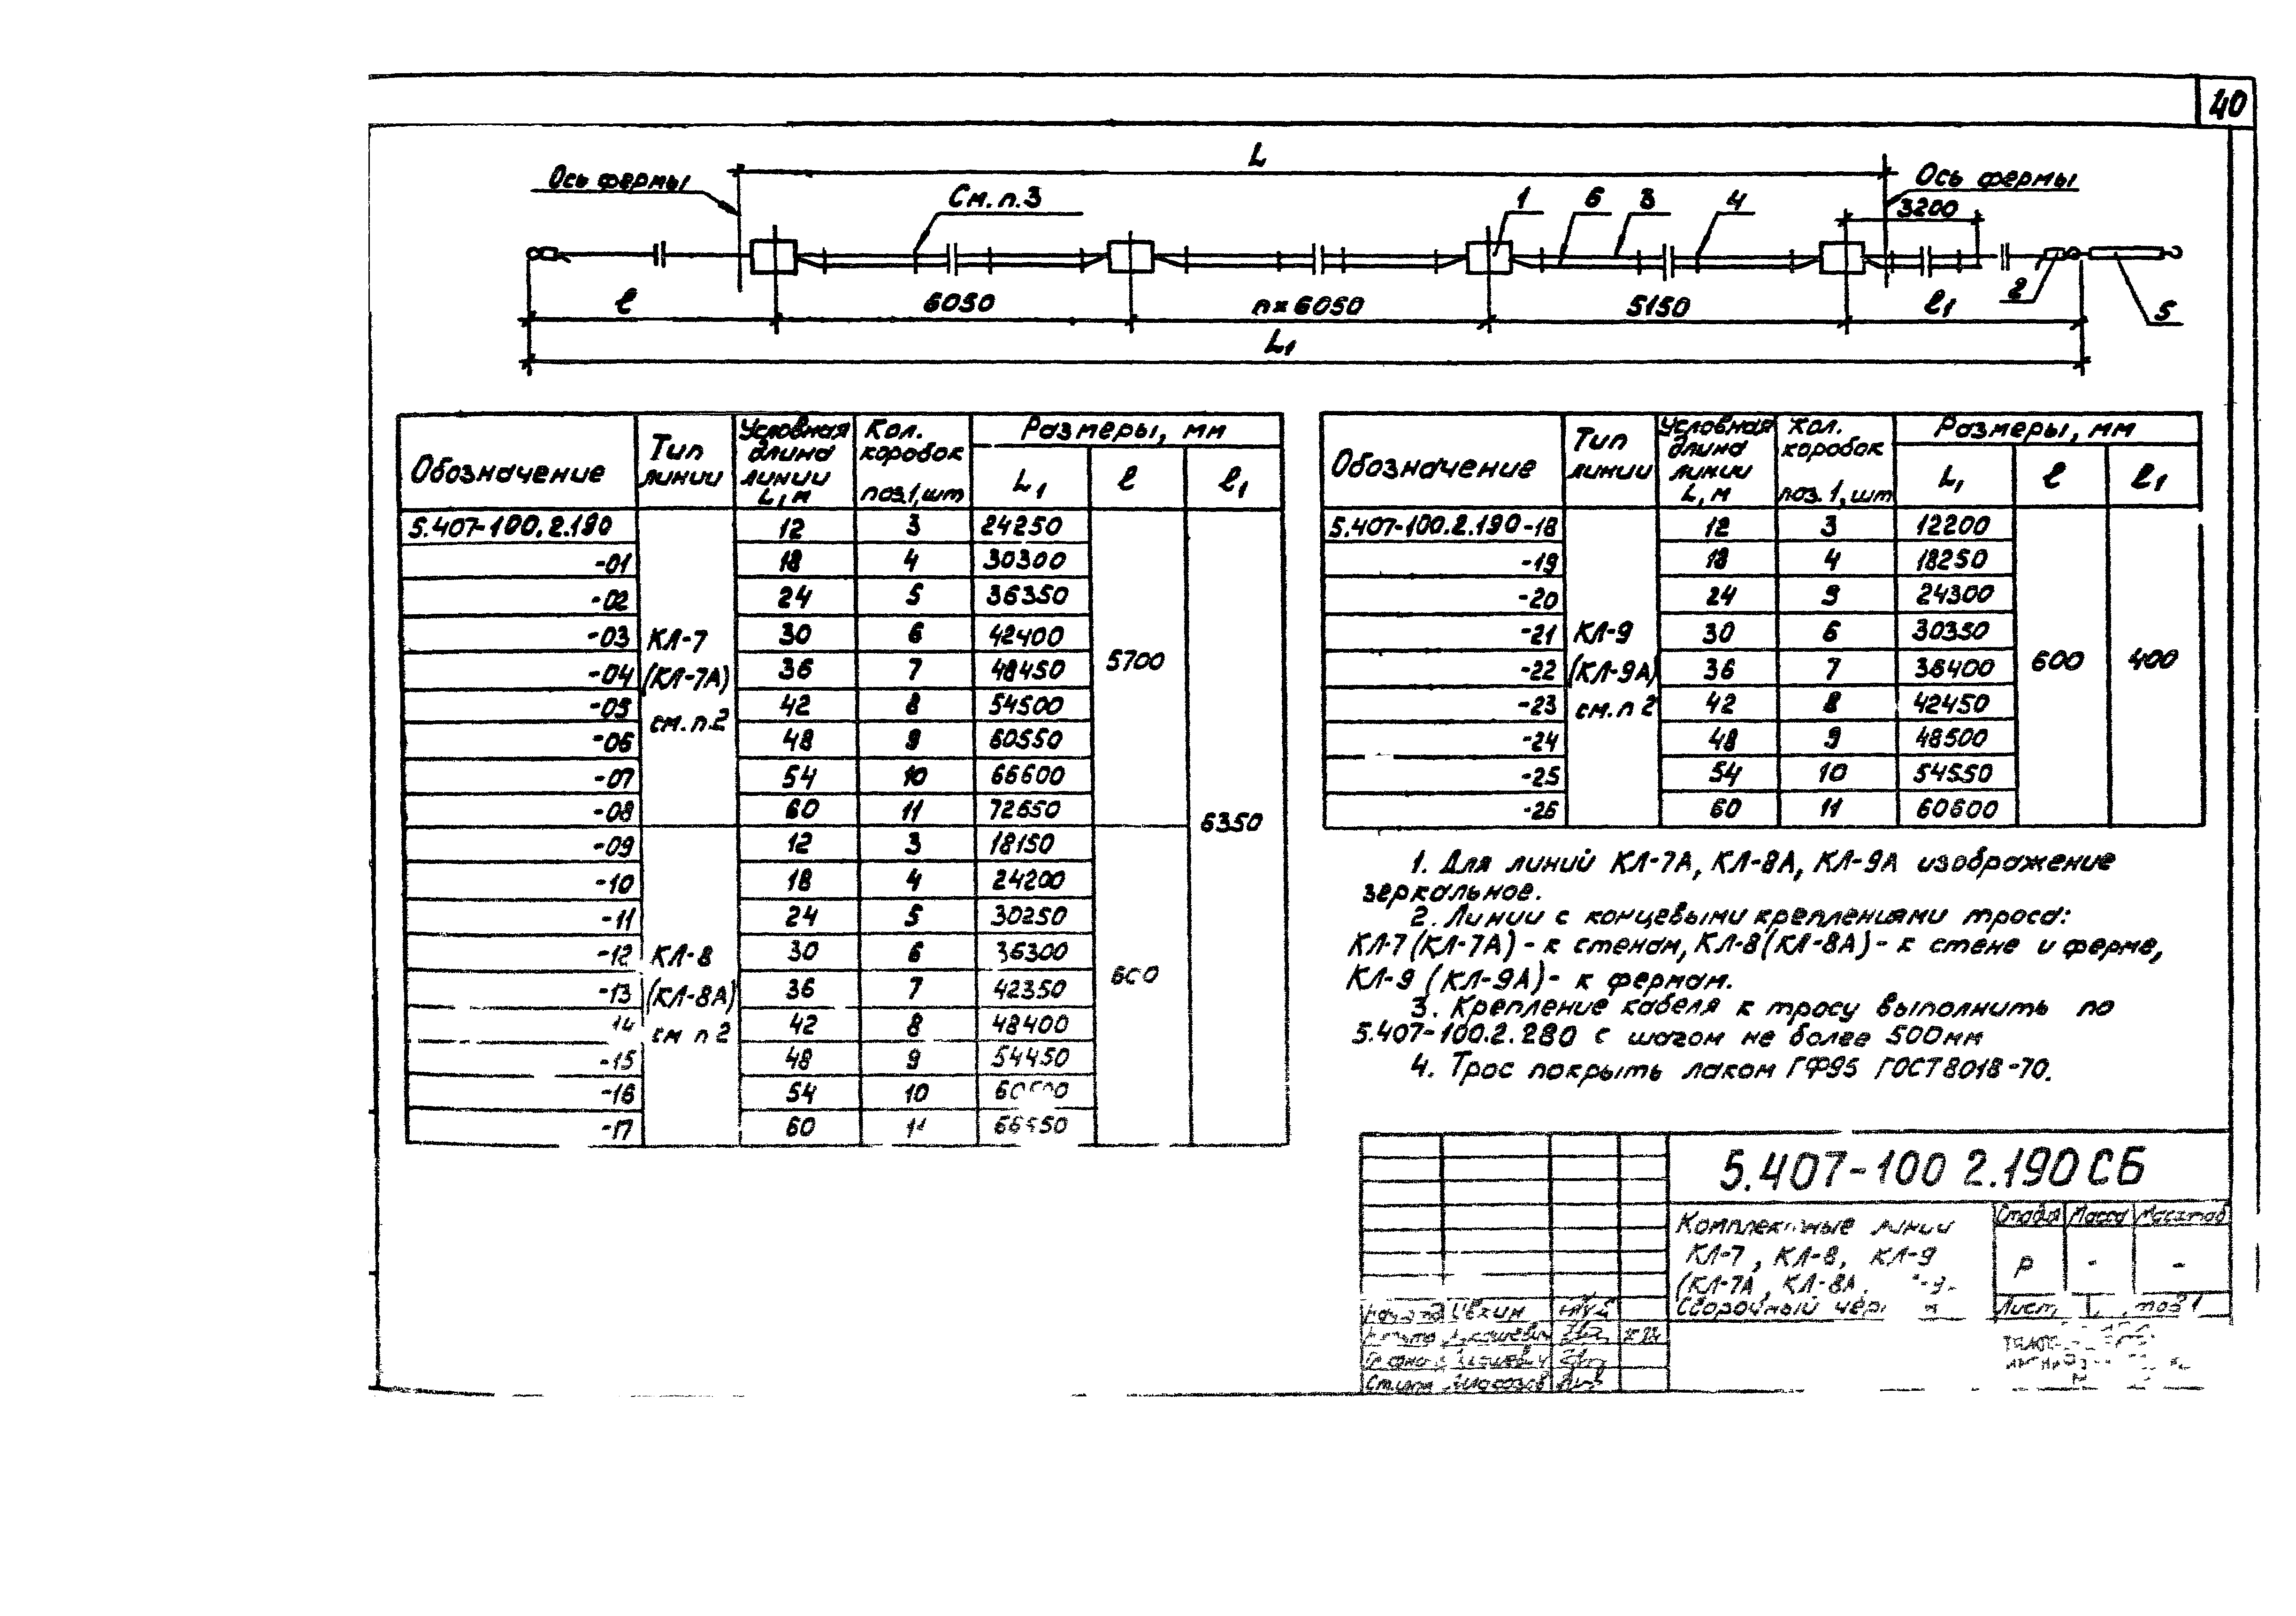 40
L
Ось фермы
См. п. 3
1
6
3
4
Ось фермы
3200
l
6050
n×6050
5150
l₁
2
5
L₁
Обозначение Тип линии Условная длина линии L, м Кол. коробок поз.1, шт Размеры, мм
L₁ l l₁
5.407-100.2.190 12 3 24250
-01 18 4 30300
-02 24 5 36350
-03 КЛ-7 30 6 42400
-04 (КЛ-7А) 36 7 48450 5700
-05 см. п.2 42 8 54500
-06 48 9 60550
-07 54 10 66600
-08 60 11 72650
6350
-09 12 3 18150
-10 18 4 24200
-11 24 5 30250
-12 КЛ-8 30 6 36300
-13 (КЛ-8А) 36 7 42350 600
14 см п 2 42 8 48400
-15 48 9 54450
-16 54 10
-17 60 11
Обозначение Тип линии Условная длина линии L, м Кол. коробок поз. 1, шт Размеры, мм
L₁ l l₁
5.407-100.2.190-18 12 3 12200
-19 18 4 18250
-20 24 5 24300
-21 КЛ-9 30 6 30350
-22 (КЛ-9А) 36 7 36400 600 400
-23 см. п 2 42 8 42450
-24 48 9 48500
-25 54 10 54550
-26 60 11 60600
1. Для линий КЛ-7А, КЛ-8А, КЛ-9А изображение
зеркальное.
2. Линии с концевыми креплениями троса:
КЛ-7 (КЛ-7А) - к стенам, КЛ-8 (КЛ-8А) - к стене и ферме,
КЛ-9 (КЛ-9А) - к фермам.
3. Крепление кабеля к тросу выполнить по
5.407-100.2.280 с шагом не более 500мм
4. Трос покрыть лаком ГФ95 ГОСТ 8018-70.
5.407-100 2.190 СБ
Комплектные линии
КЛ-7, КЛ-8, КЛ-9
(КЛ-7А, КЛ-8А,
Сборочный
Стадия Масса Масштаб
Р - -
Лист